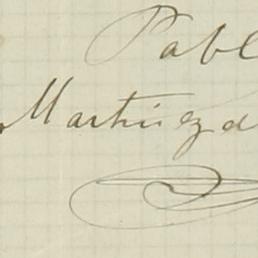 Pabl
Martinez d